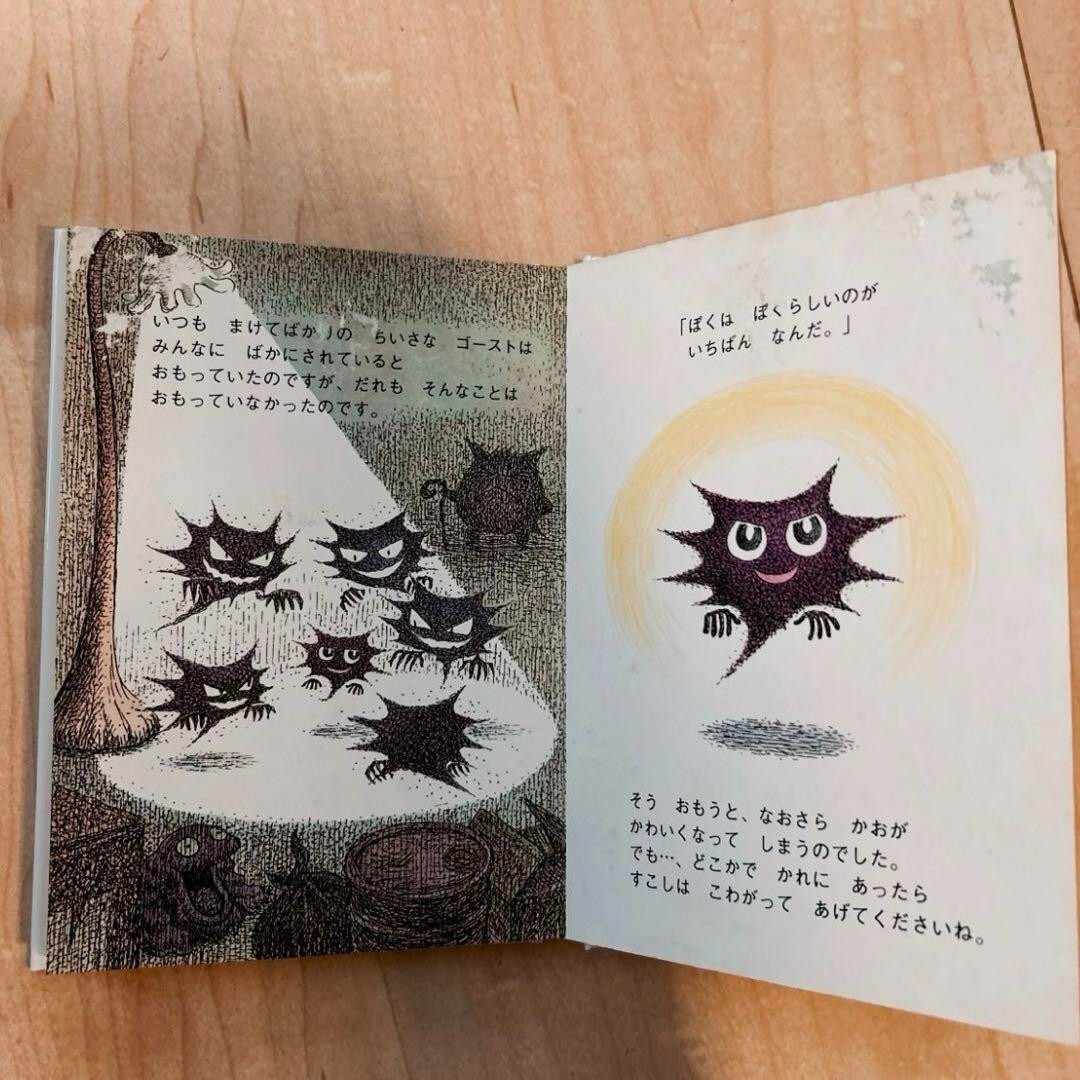 いつも　まけてばかりの　ちいさな　ゴーストは
みんなに　ばかにされていると
おもっていたのですが、だれも　そんなことは
おもっていなかったのです。
「ぼくは　ぼくらしいのが
いちばん　なんだ。」
そう　おもうと、なおさら　かおが
かわいくなって　しまうのでした。
でも…、どこかで　かれに　あったら
すこしは　こわがって　あげてくださいね。